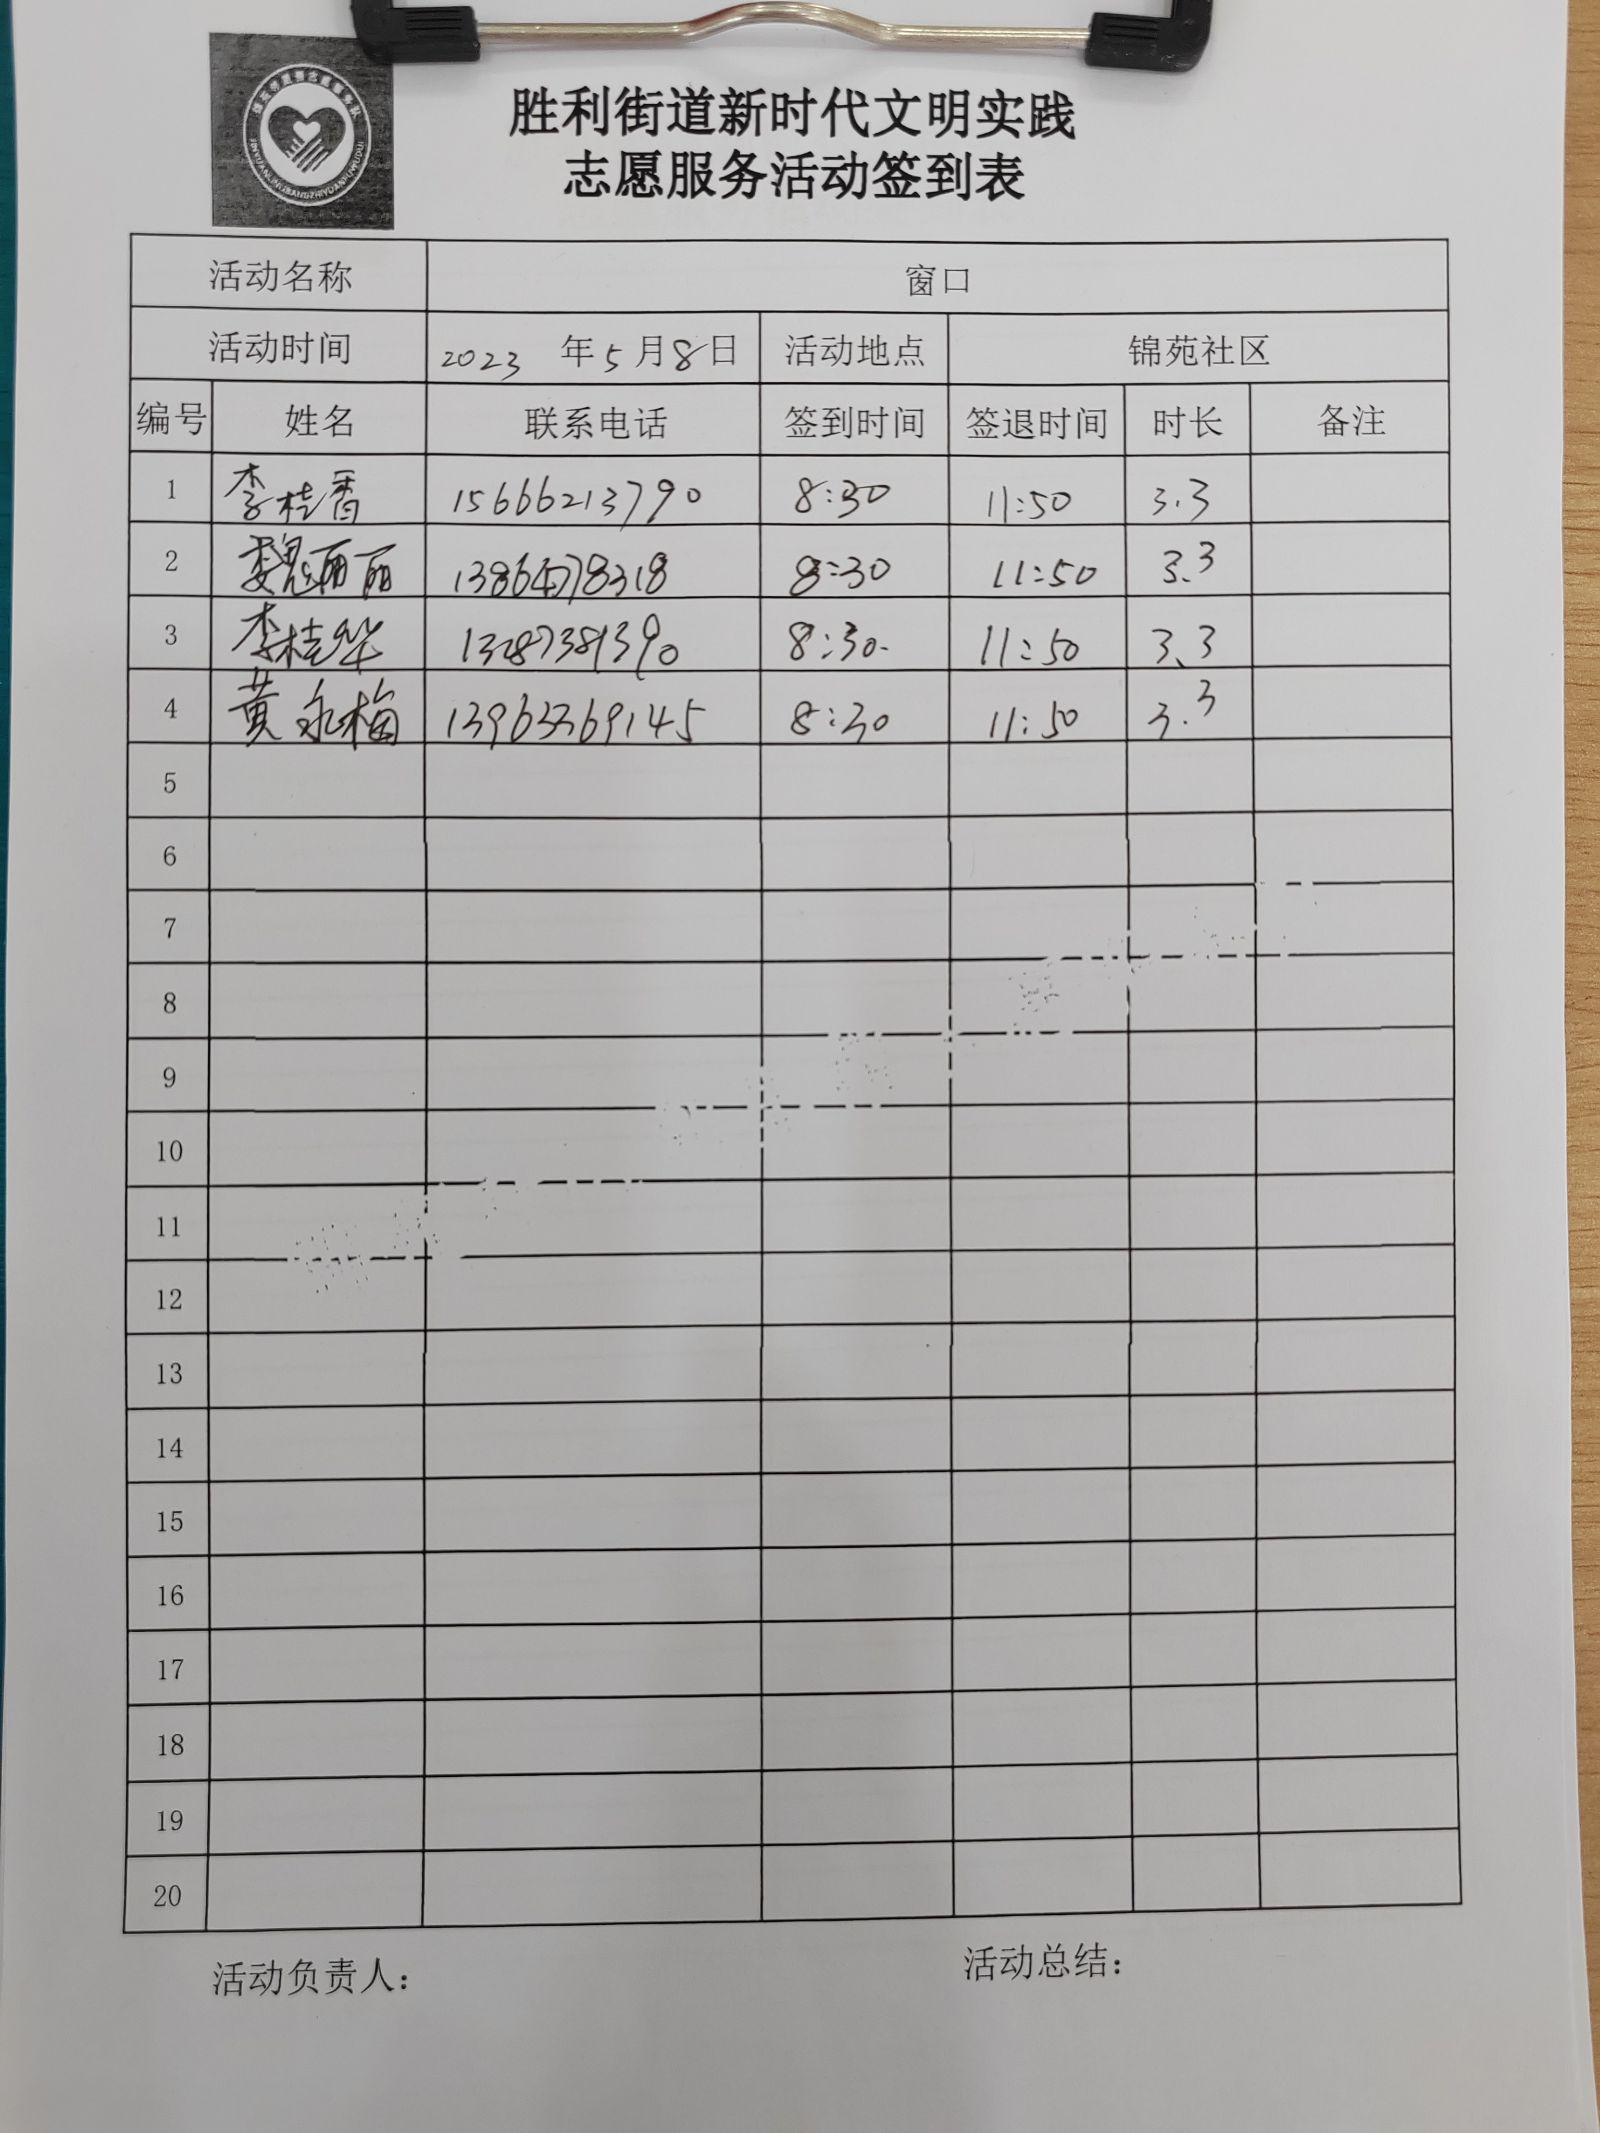 胜利街道新时代文明实践
志愿服务活动签到表
活动名称 窗口
活动时间 2023 年 5 月 8 日 活动地点 锦苑社区
编号 姓名 联系电话 签到时间 签退时间 时长 备注
1 李桂香 15666213790 8:30 11:50 3.3
2 魏丽丽 8:30 11:50 3.3
3 李桂华 13287381390 8:30 11:50 3.3
4 黄永梅 13963369145 8:30 11:50 3.3
5
6
7
8
9
10
11
12
13
14
15
16
17
18
19
20
活动负责人: 活动总结: